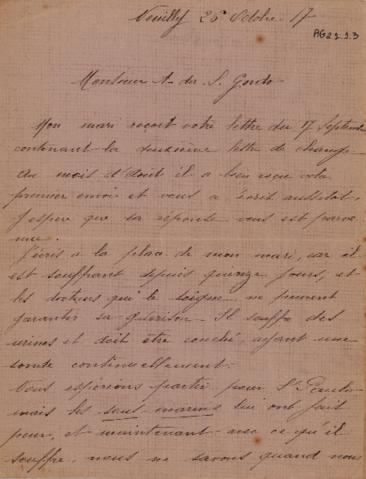 Neuilly 26 Octobre 17
AG 2 2 . 2 . 3
Monsieur A. dos S. Gordo
Mon mari reçoit votre lettre du 17 Septembre
contenant la deuxième lettre de change.
Au mois d'Août il a bien reçu votre
premier envoi et vous a écrit aussitôt,
j'espère que sa réponse vous est parve
nue.
J'écris à la place de mon mari, car il
est souffrant depuis quinze jours, et
les docteurs qui le soigne ne peuvent
garantir sa guérison. Il souffre des
urines et doit être couché, ayant une
sonde continuellement.
Nous espérions partir pour St Paulo
mais les sous-marins lui ont fait
peur, et maintenant avec ce qu'il
souffre, nous ne savons quand nous